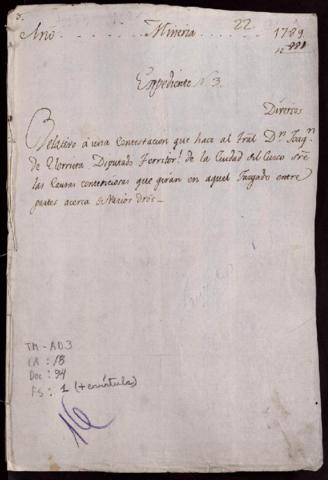 Año Mineria 22 1789
Expediente N 3.
Diversos
Relativo á una Contestacion que hace al Tral Dn. Joaqn.
de Diputado Territorl. de la Ciudad del Cusco sre
las Causas contenciosas que giran en aquel Juzgado entre
partes acerca de varios dros
TM-AD3
CA: 18
Doc: 94
Fs: 1 (+carátula)
16